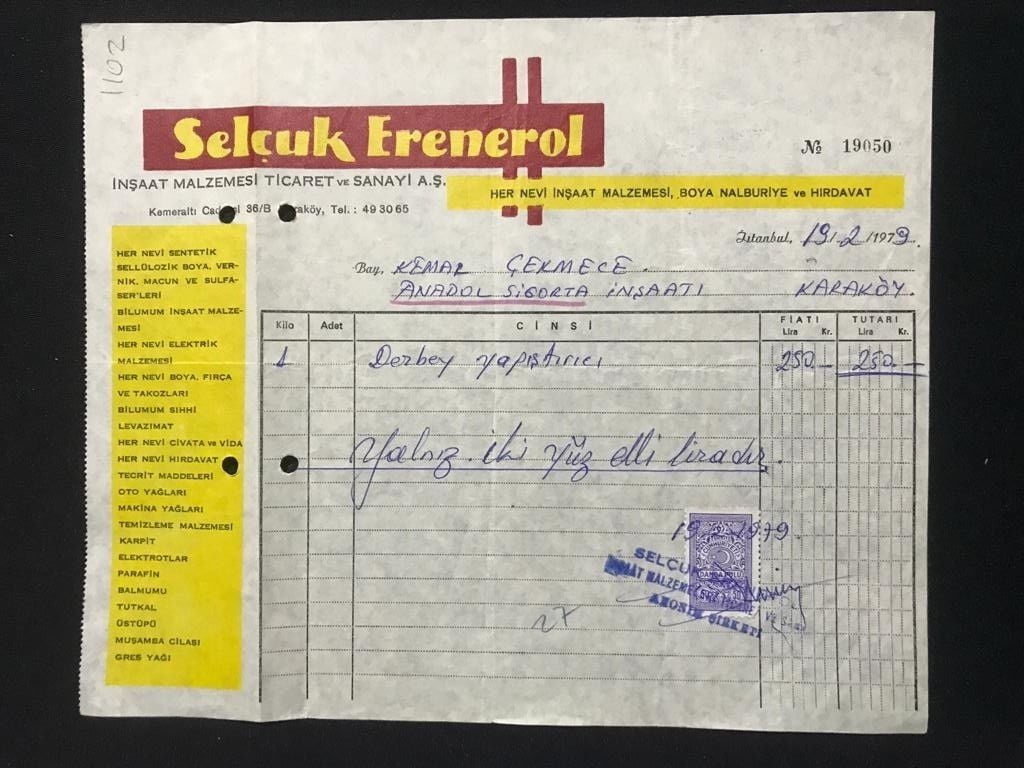 1102
Selçuk Erenerol
№ 19050
İNŞAAT MALZEMESİ TİCARET VE SANAYİ A.Ş.
HER NEVİ İNŞAAT MALZEMESİ, BOYA NALBURİYE ve HIRDAVAT
Kemeraltı 36/B Tel.: 49 30 65
İstanbul, 19/2/1979
Bay, KEMAL ÇEKMECE.
ANADOL SİGORTA İNŞAATI KARAKÖY.
HER NEVİ SENTETİK
SELLÜLOZİK BOYA, VER-
NİK, MACUN VE SULFA-
SER'LERİ
BİLUMUM İNŞAAT MALZE-
MESİ
HER NEVİ ELEKTRİK
MALZEMESİ
HER NEVİ BOYA, FIRÇA
VE TAKOZLARI
BİLUMUM SIHHİ
LEVAZIMAT
HER NEVİ CİVATA ve VİDA
HER NEVİ HIRDAVAT
TECRİT MADDELERİ
OTO YAĞLARI
MAKİNA YAĞLARI
TEMİZLEME MALZEMESİ
KARPİT
ELEKTROTLAR
PARAFİN
BALMUMU
TUTKAL
ÜSTÜPÜ
MUŞAMBA CİLASI
GRES YAĞI
Kilo Adet CİNSİ FİATI Lira Kr. TUTARI Lira Kr.
1 Derbey yapıştırıcı 250.— 250.—
Yalnız iki yüz elli liradır.
19 1979.
SELÇUK
MALZEMESİ
ANONİM ŞİRKETİ
27